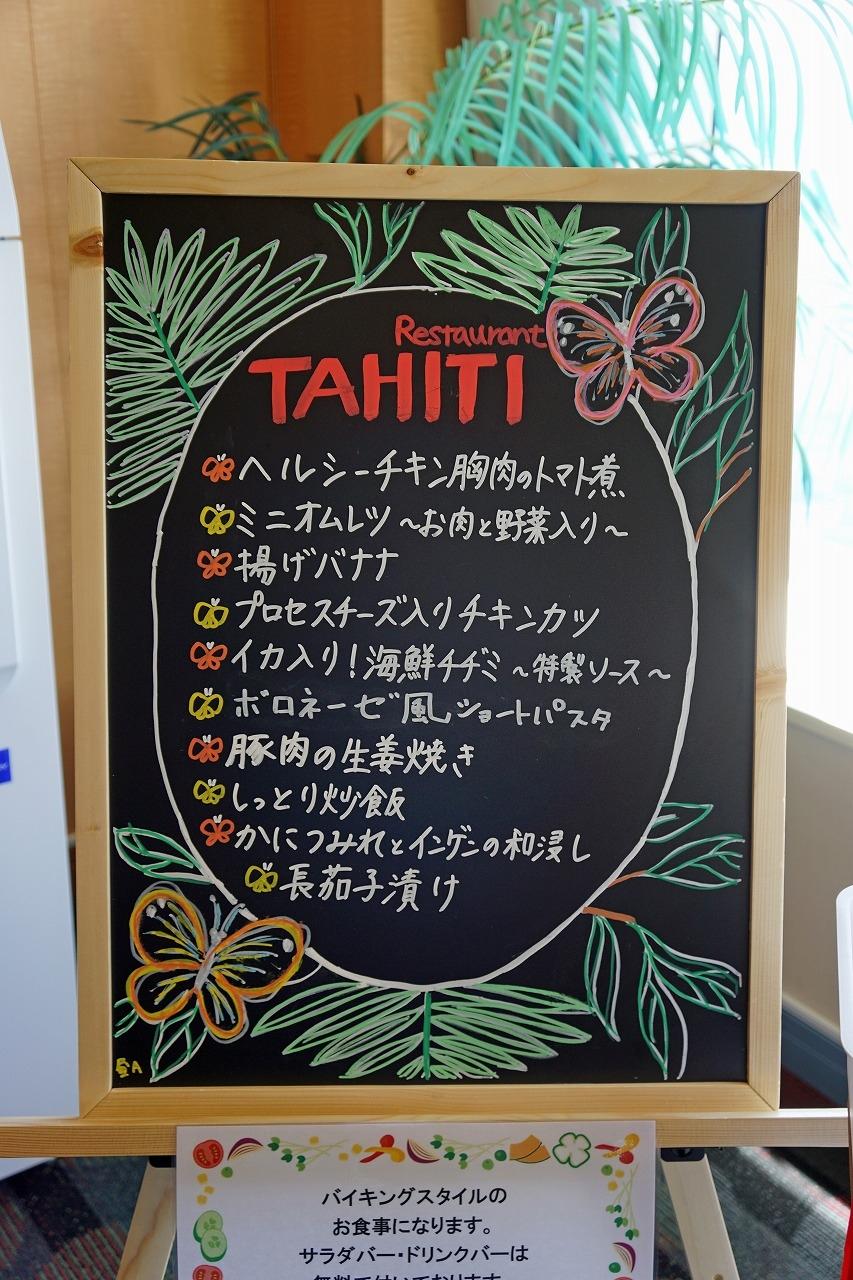 Restaurant
TAHITI
ヘルシーチキン胸肉のトマト煮
ミニオムレツ ～お肉と野菜入り～
揚げバナナ
プロセスチーズ入りチキンカツ
イカ入り!海鮮チヂミ ～特製ソース～
ボロネーゼ風ショートパスタ
豚肉の生姜焼き
しっとり炒飯
かにつみれとインゲンの和浸し
長茄子漬け
昼A
バイキングスタイルの
お食事になります。
サラダバー・ドリンクバーは
無料で付いております